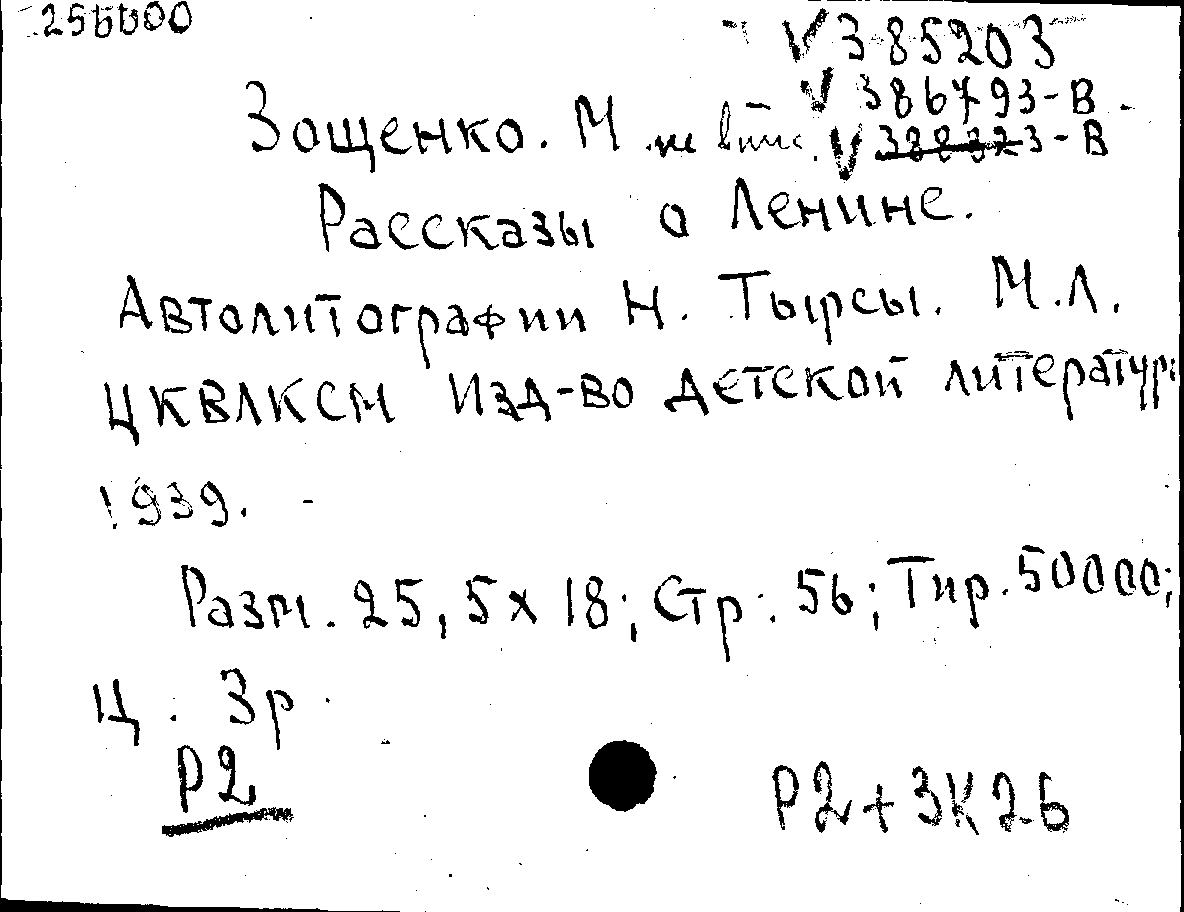 V 385203
V 386793-В
Зощенко. М не впис. V 388323-В
Рассказы о Ленине.
Автолитографии Н. Тырсы. М.Л.
ЦКВЛКСМ Изд-во детской литературы
1939. -
Разм. 25,5х18; Стр. 56; Тир. 50000;
Ц. 3р.
Р2
Р2+3К26